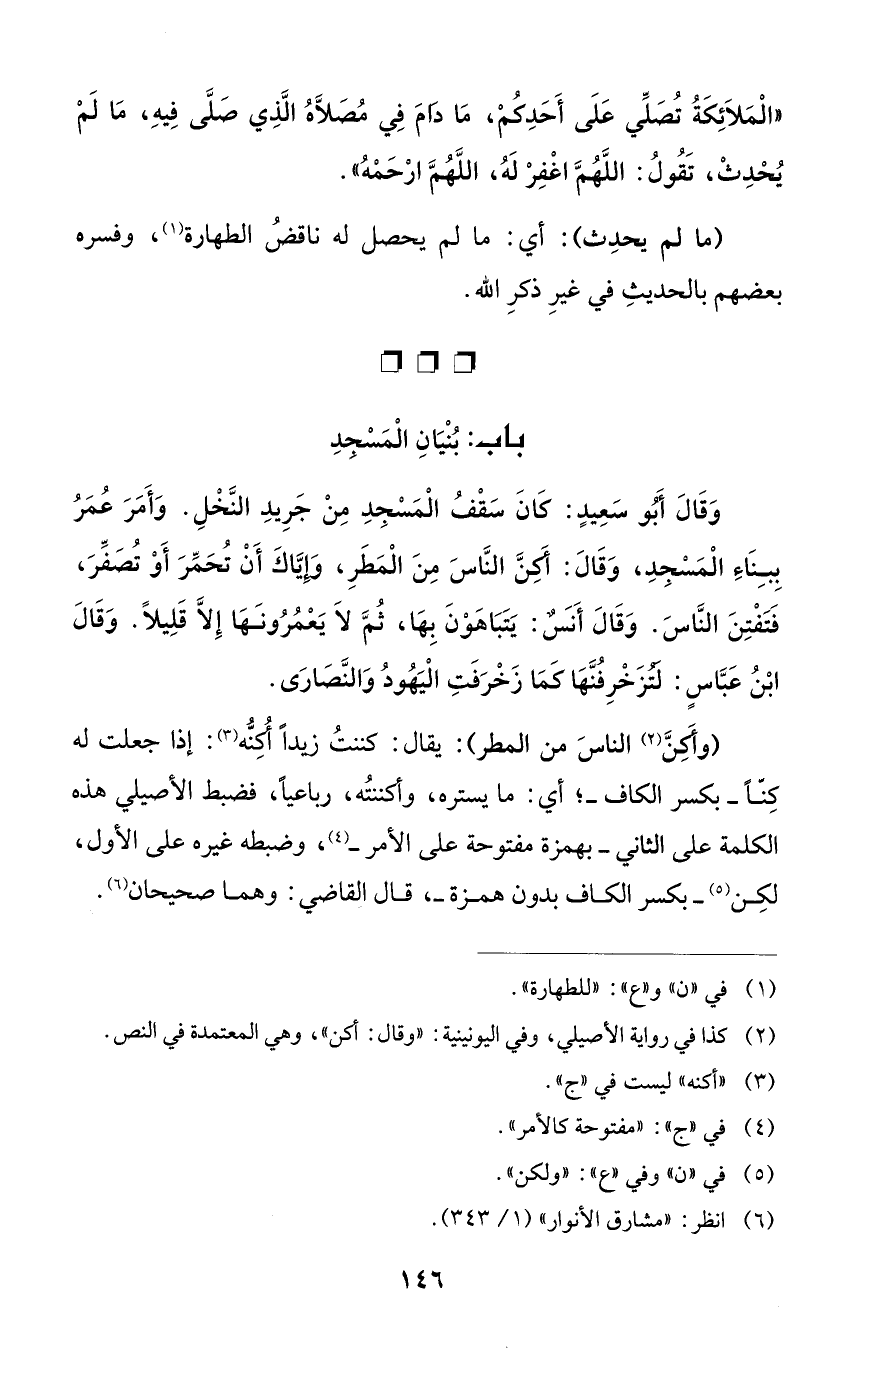 «الْمَلاَئِكَةُ تُصَلِّي عَلَى أَحَدِكُمْ، مَا دَامَ فِي مُصَلاَّهُ الَّذِي صَلَّى فِيهِ، مَا لَمْ
يُحْدِثْ، تَقُولُ: اللَّهُمَّ اغْفِرْ لَهُ، اللَّهُمَّ ارْحَمْهُ».
(ما لم يحدِث): أي: ما لم يحصل له ناقضُ الطهارة(١)، وفسره
بعضهم بالحديثِ في غيرِ ذكرِ الله.
باب: بُنْيَانِ الْمَسْجِدِ
وَقَالَ أَبُو سَعِيدٍ: كَانَ سَقْفُ الْمَسْجِدِ مِنْ جَرِيدِ النَّخْلِ. وَأَمَرَ عُمَرُ
بِبِنَاءِ الْمَسْجِدِ، وَقَالَ: أَكِنَّ النَّاسَ مِنَ الْمَطَرِ، وَإِيَّاكَ أَنْ تُحَمِّرَ أَوْ تُصَفِّرَ،
فَتَفْتِنَ النَّاسَ. وَقَالَ أَنَسٌ: يَتَبَاهَوْنَ بِهَا، ثُمَّ لاَ يَعْمُرُونَهَا إِلاَّ قَلِيلاً. وَقَالَ
ابْنُ عَبَّاسٍ: لَتُزَخْرِفُنَّهَا كَمَا زَخْرَفَتِ الْيَهُودُ وَالنَّصَارَى.
(وأَكِنَّ(٢) الناسَ من المطر): يقال: كننتُ زيداً أَكُنُّه(٣): إذا جعلت له
كِنّاً ـ بكسر الكاف ـ؛ أي: ما يستره، وأكننتُه، رباعياً، فضبط الأصيلي هذه
الكلمة على الثاني ـ بهمزة مفتوحة على الأمر ـ(٤)، وضبطه غيره على الأول،
لكِن(٥) ـ بكسر الكاف بدون همزة ـ، قال القاضي: وهما صحيحان(٦).
(١) في «ن» و«ع»: «للطهارة».
(٢) كذا في رواية الأصيلي، وفي اليونينية: «وقال: أكن»، وهي المعتمدة في النص.
(٣) «أكنه» ليست في «ج».
(٤) في «ج»: «مفتوحة كالأمر».
(٥) في «ن» وفي «ع»: «ولكن».
(٦) انظر: «مشارق الأنوار» (١/ ٣٤٣).
١٤٦